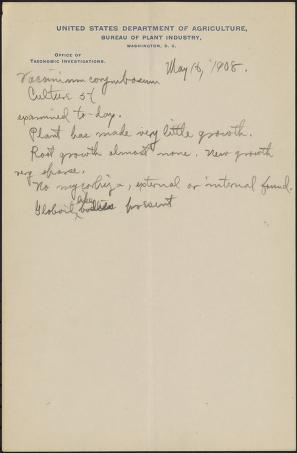 UNITED STATES DEPARTMENT OF AGRICULTURE,
BUREAU OF PLANT INDUSTRY,
WASHINGTON, D. C.
OFFICE OF
TAXONOMIC INVESTIGATIONS.
May 18, 1908.
Vaccinium corymbosum
Culture 54
examined to-day.
Plant has made very little growth.
Root growth almost none. New growth
very sparse.
No mycorhiza, external or internal found.
present